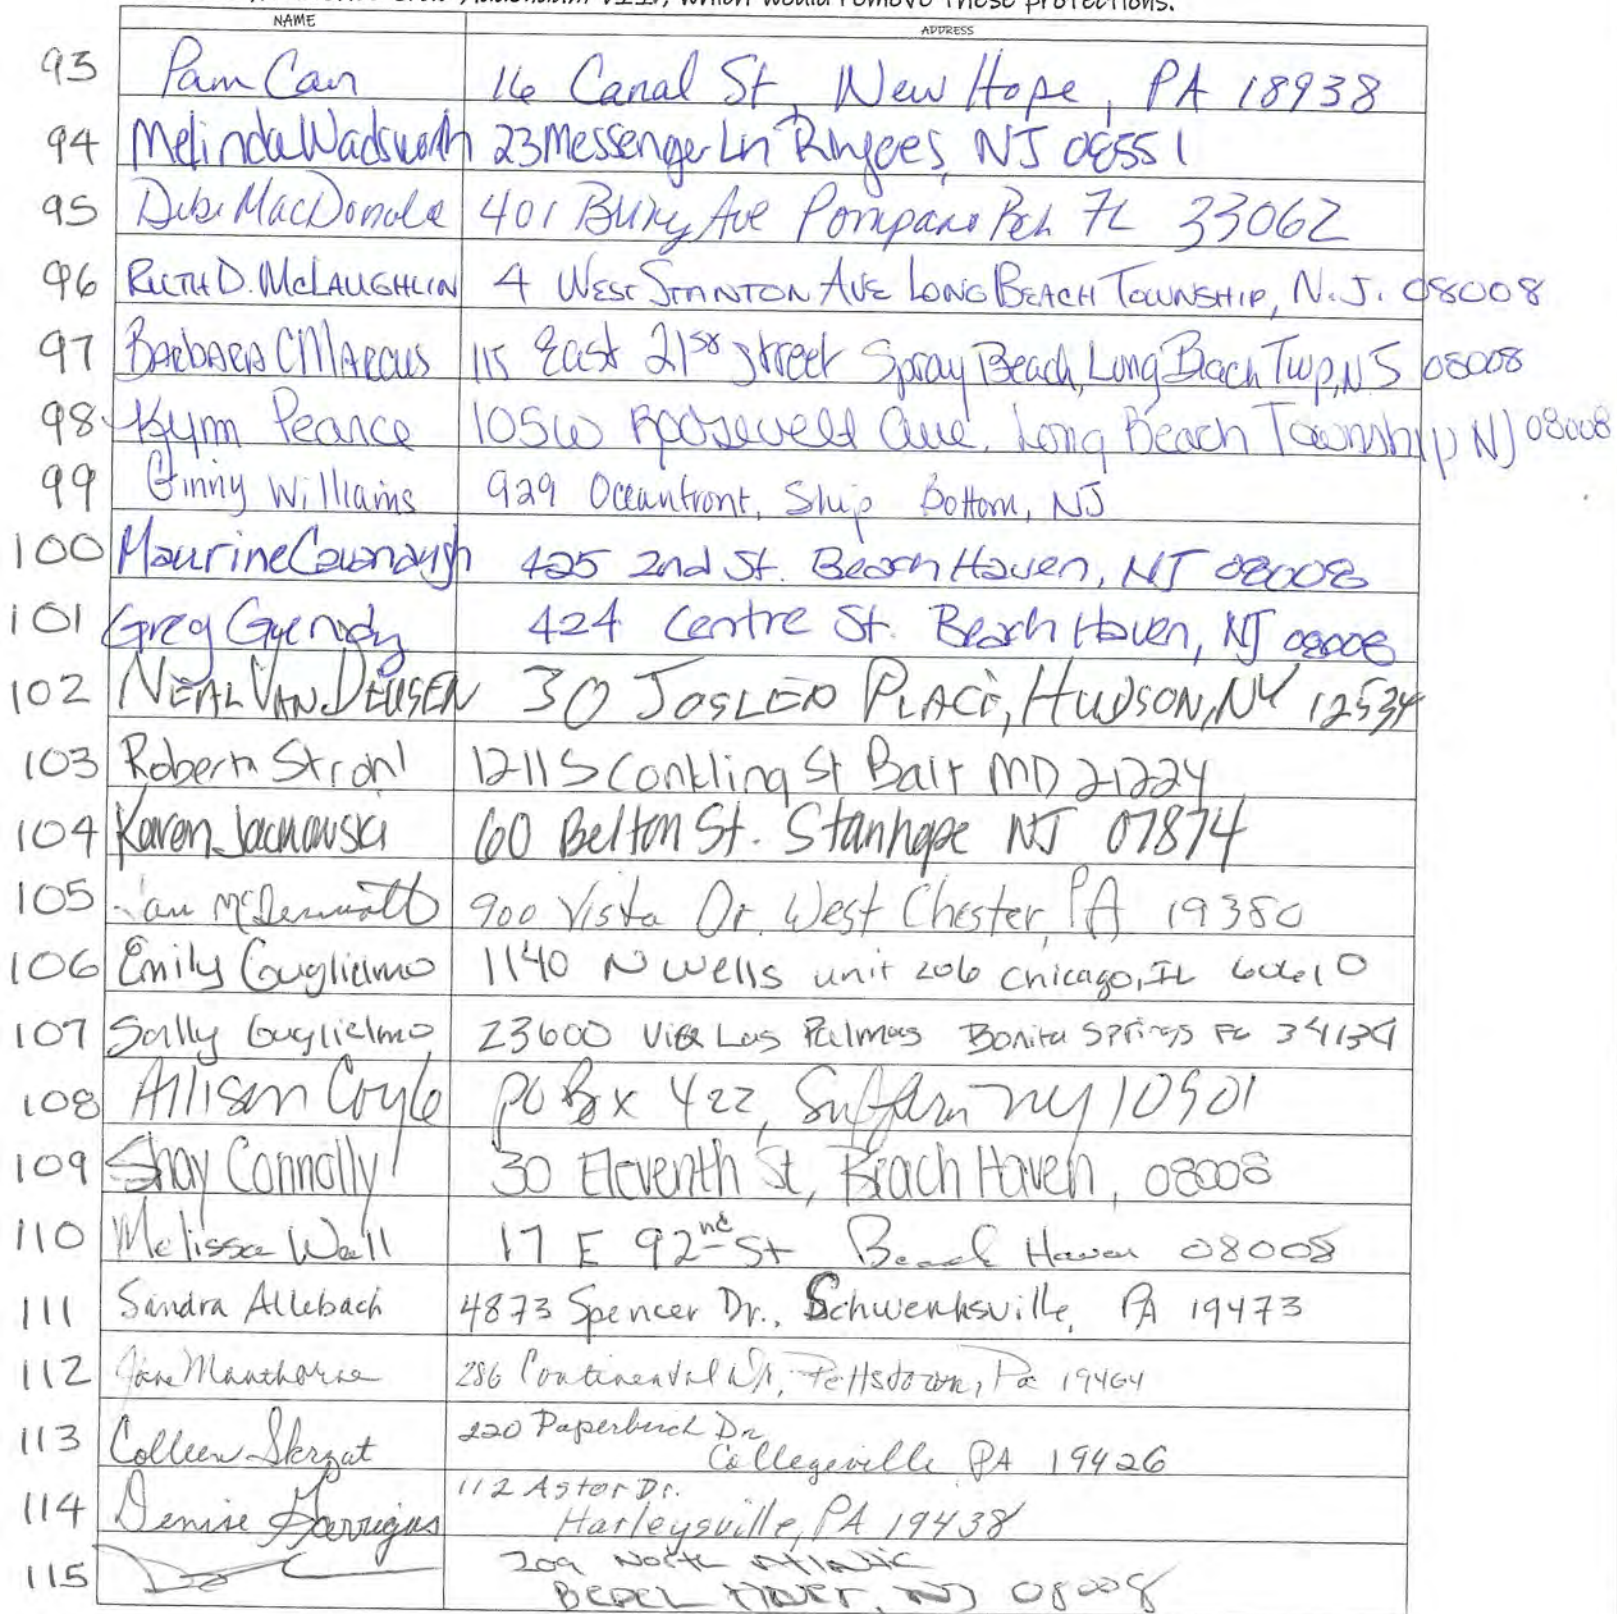 which would remove these protections.
NAME ADDRESS
93 Pam Carr 16 Canal St, New Hope, PA 18938
94 Melinda Wadsworth 23 Messenger Ln Ringoes, NJ 08551
95 MacDonald 401 Ave Pompano Bch FL 33062
96 RUTH D. McLAUGHLIN 4 WEST STANTON AVE LONG BEACH TOWNSHIP, N.J. 08008
97 BARBARA C MARCUS 115 East 21st Street Spray Beach, Long Beach Twp, NJ 08008
98 Kym Pearce 105 W Roosevelt Ave. Long Beach Township NJ 08008
99 Ginny Williams 929 Oceanfront, Ship Bottom, NJ
100 Maurine Cavanaugh 425 2nd St. Beach Haven, NJ 08008
101 Greg Gyendy 424 Centre St. Beach Haven, NJ 08008
102 NEAL VAN DEUSEN 30 JOSLEN PLACE, HUDSON, NY 12534
103 Roberta Strohl 1211 S Conkling St Balt MD 21224
104 Karen Jacnowski 60 Belton St. Stanhope NJ 07874
105 McDermott 900 Vista Dr. West Chester, PA 19380
106 Emily Guglielmo 1140 N Wells unit 206 Chicago, IL 60610
107 Sally Guglielmo 23600 Via Las Palmas Bonita Springs FL 34134
108 Allison Coyle PO Box 422, Suffern NY 10901
109 Shay Connolly 30 Eleventh St, Beach Haven, 08008
110 Melissa Wall 17 E 92nd St Beach Haven 08008
111 Sandra Allebach 4873 Spencer Dr., Schwenksville, PA 19473
112 Jane Manthorne 286 Continental Dr, Pottstown, Pa 19464
113 Colleen Skrzat 220 Paperbirch Dr
Collegeville PA 19426
114 Denise Garrigus 112 Astor Dr.
Harleysville, PA 19438
115 209 North Atlantic
BEACH HAVEN, NJ 08008